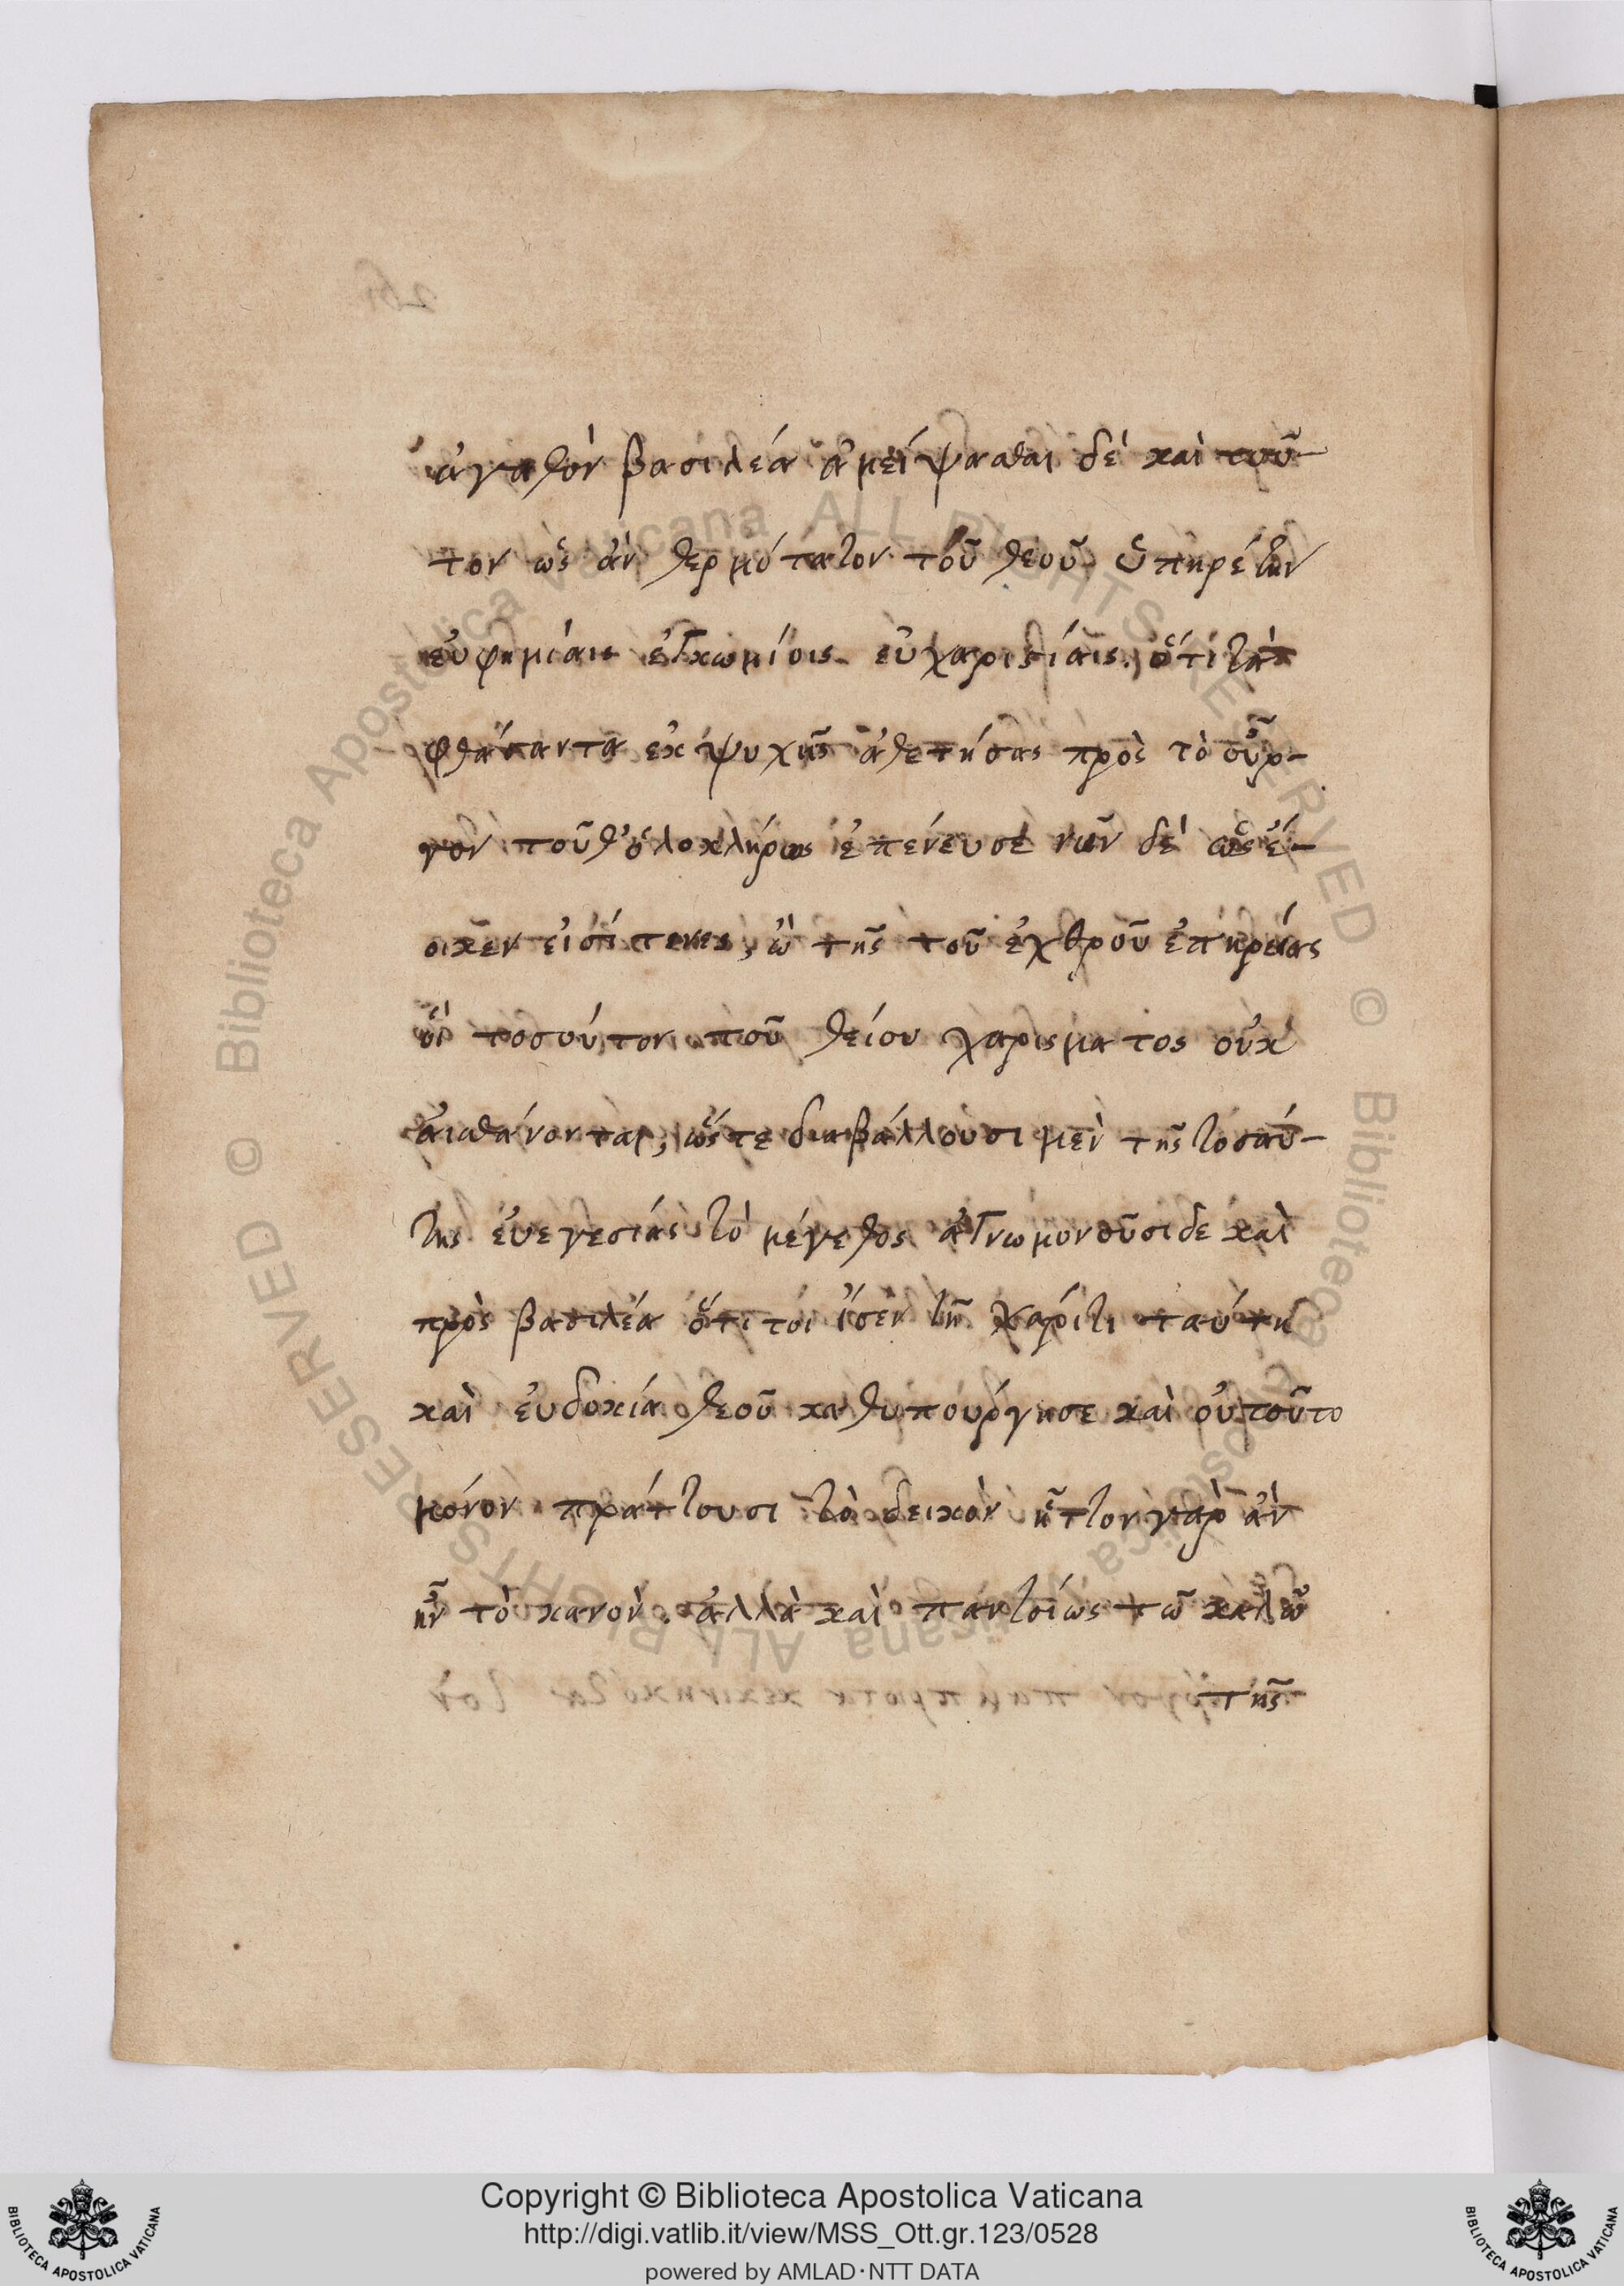 ἀγαθὸν βασιλέα ἀμείψασθαι δὲ καὶ τοῦ-
τον ὡς ἂν θερμότατον τοῦ θεοῦ ὑπηρέτην
εὐφημίαις ἐγκωμίοις εὐχαριστίαις. ὅτι τὰ
φθάσαντα ἐκ ψυχῆς ἀθετήσας πρὸς τὸ οὖρ-
γον τοῦθ' ὁλοκλήρως ἐπένευσε νῦν δὲ ὡς ἔ-
οικεν εἰσί τινες, ὢ τῆς τοῦ ἐχθροῦ ἐπηρείας
οἳ τοσούτον τοῦ θείου χαρίσματος οὐκ
αἰσθάνονται, ὥστε διαβάλλουσι μὲν τῆς τοσαύ-
της ἐυεγεσίας τὸ μέγεθος ἀγνωμονοῦσι δε καὶ
πρὸς βασιλέα ὅτι τοι τῆ χάριτι ταύτη
καὶ ἐυδοκία θεοῦ καθυπούργησε καὶ οὐ τοῦτο
μόνον πράττουσι τὸ δεικὸν ἧττον γὰρ ἂν
ἦν τὸ κακὸν. ἀλλὰ καὶ παντοίως τῶ καλῶ
τῆς
Copyright © Biblioteca Apostolica Vaticana
http://digi.vatlib.it/view/MSS_Ott.gr.123/0528
powered by AMLAD·NTT DATA